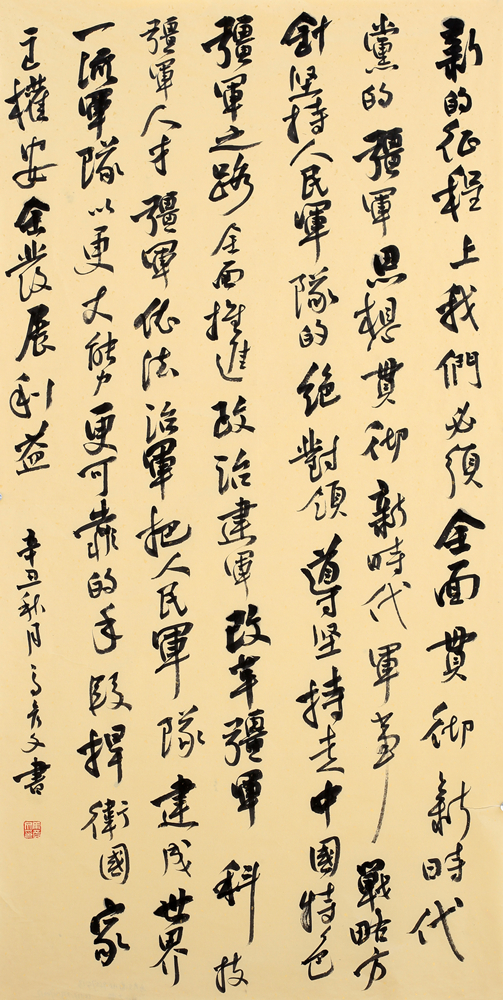 新的征程上我們必須全面貫彻新時代
黨的彊軍思想貫彻新時代軍事戰略方
針坚持人民軍隊的絶對領導坚持走中國特色
彊軍之路全面推進政治建軍改革彊軍科技
彊軍人才彊軍依法治軍把人民軍隊建成世界
一流軍隊以更大能力更可靠的手段捍衛國家
主權安全發展利益
辛丑秋月高文書